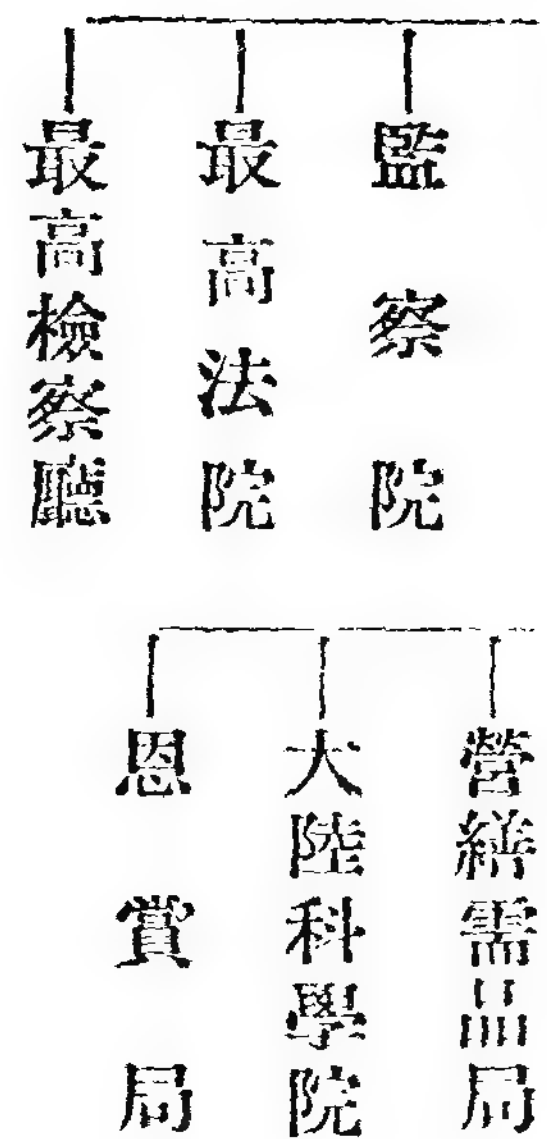 監察院
最高法院
最高檢察廳
營繕需品局
大陸科學院
恩賞局